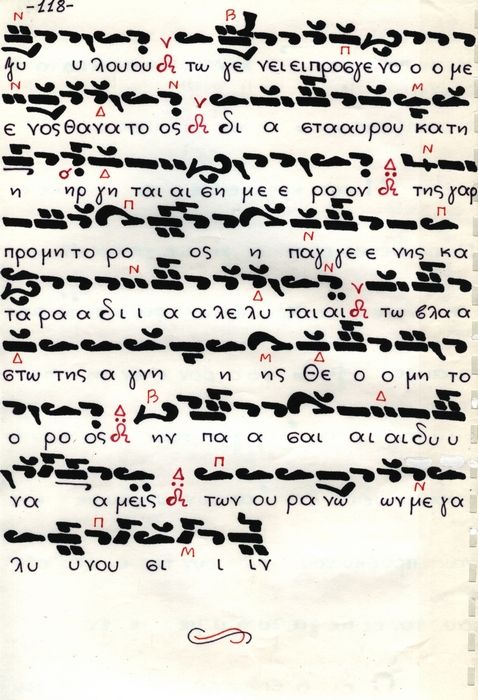 -118-
ξυ υ λου ου τω γε νει ει προσγε νο ο με
ε νος θα να το ος δι α στα αυ ρου κα τη
η ηρ γη ται αι ση με ε ρο ον της γαρ
προ μη το ρο ος η παγ γε ε νης κα
τα ρα α δι ι α α λε λυ ται αι τω βλα α
στω της α γνη η ης Θε ο ο μη το
ο ρο ος ην πα α σαι αι αι δυ υ
να α μεϊς των ου ρα νω ων με γα
λυ υ νου σι ι ιν